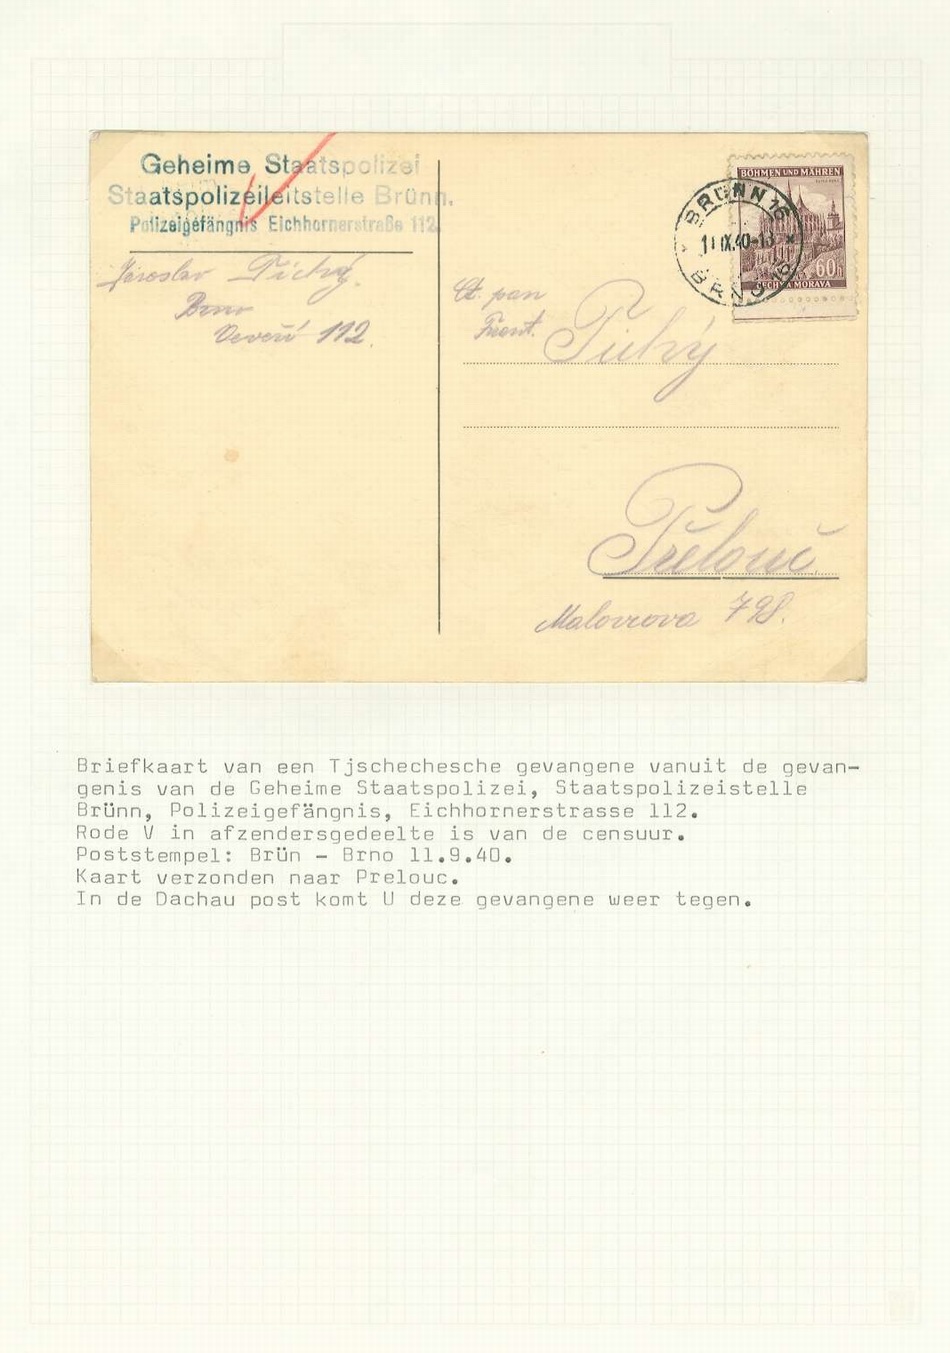 Geheime Staatspolizei
Staatspolizeileitstelle Brünn.
Polizeigefängnis Eichhornerstraße 112.
Jaroslav Tichý.
Brno
Veveří 112.
BÖHMEN UND MÄHREN
60h
ČECHY A MORAVA
BRÜNN 16
11.IX.40-18
BRNO 16
Ct. pan
Frant. Tichý
Přelouč.
798.
Briefkaart van een Tjschechesche gevangene vanuit de gevan-
genis van de Geheime Staatspolizei, Staatspolizeistelle
Brünn, Polizeigefängnis, Eichhornerstrasse 112.
Rode V in afzendersgedeelte is van de censuur.
Poststempel: Brün - Brno 11.9.40.
Kaart verzonden naar Prelouc.
In de Dachau post komt U deze gevangene weer tegen.